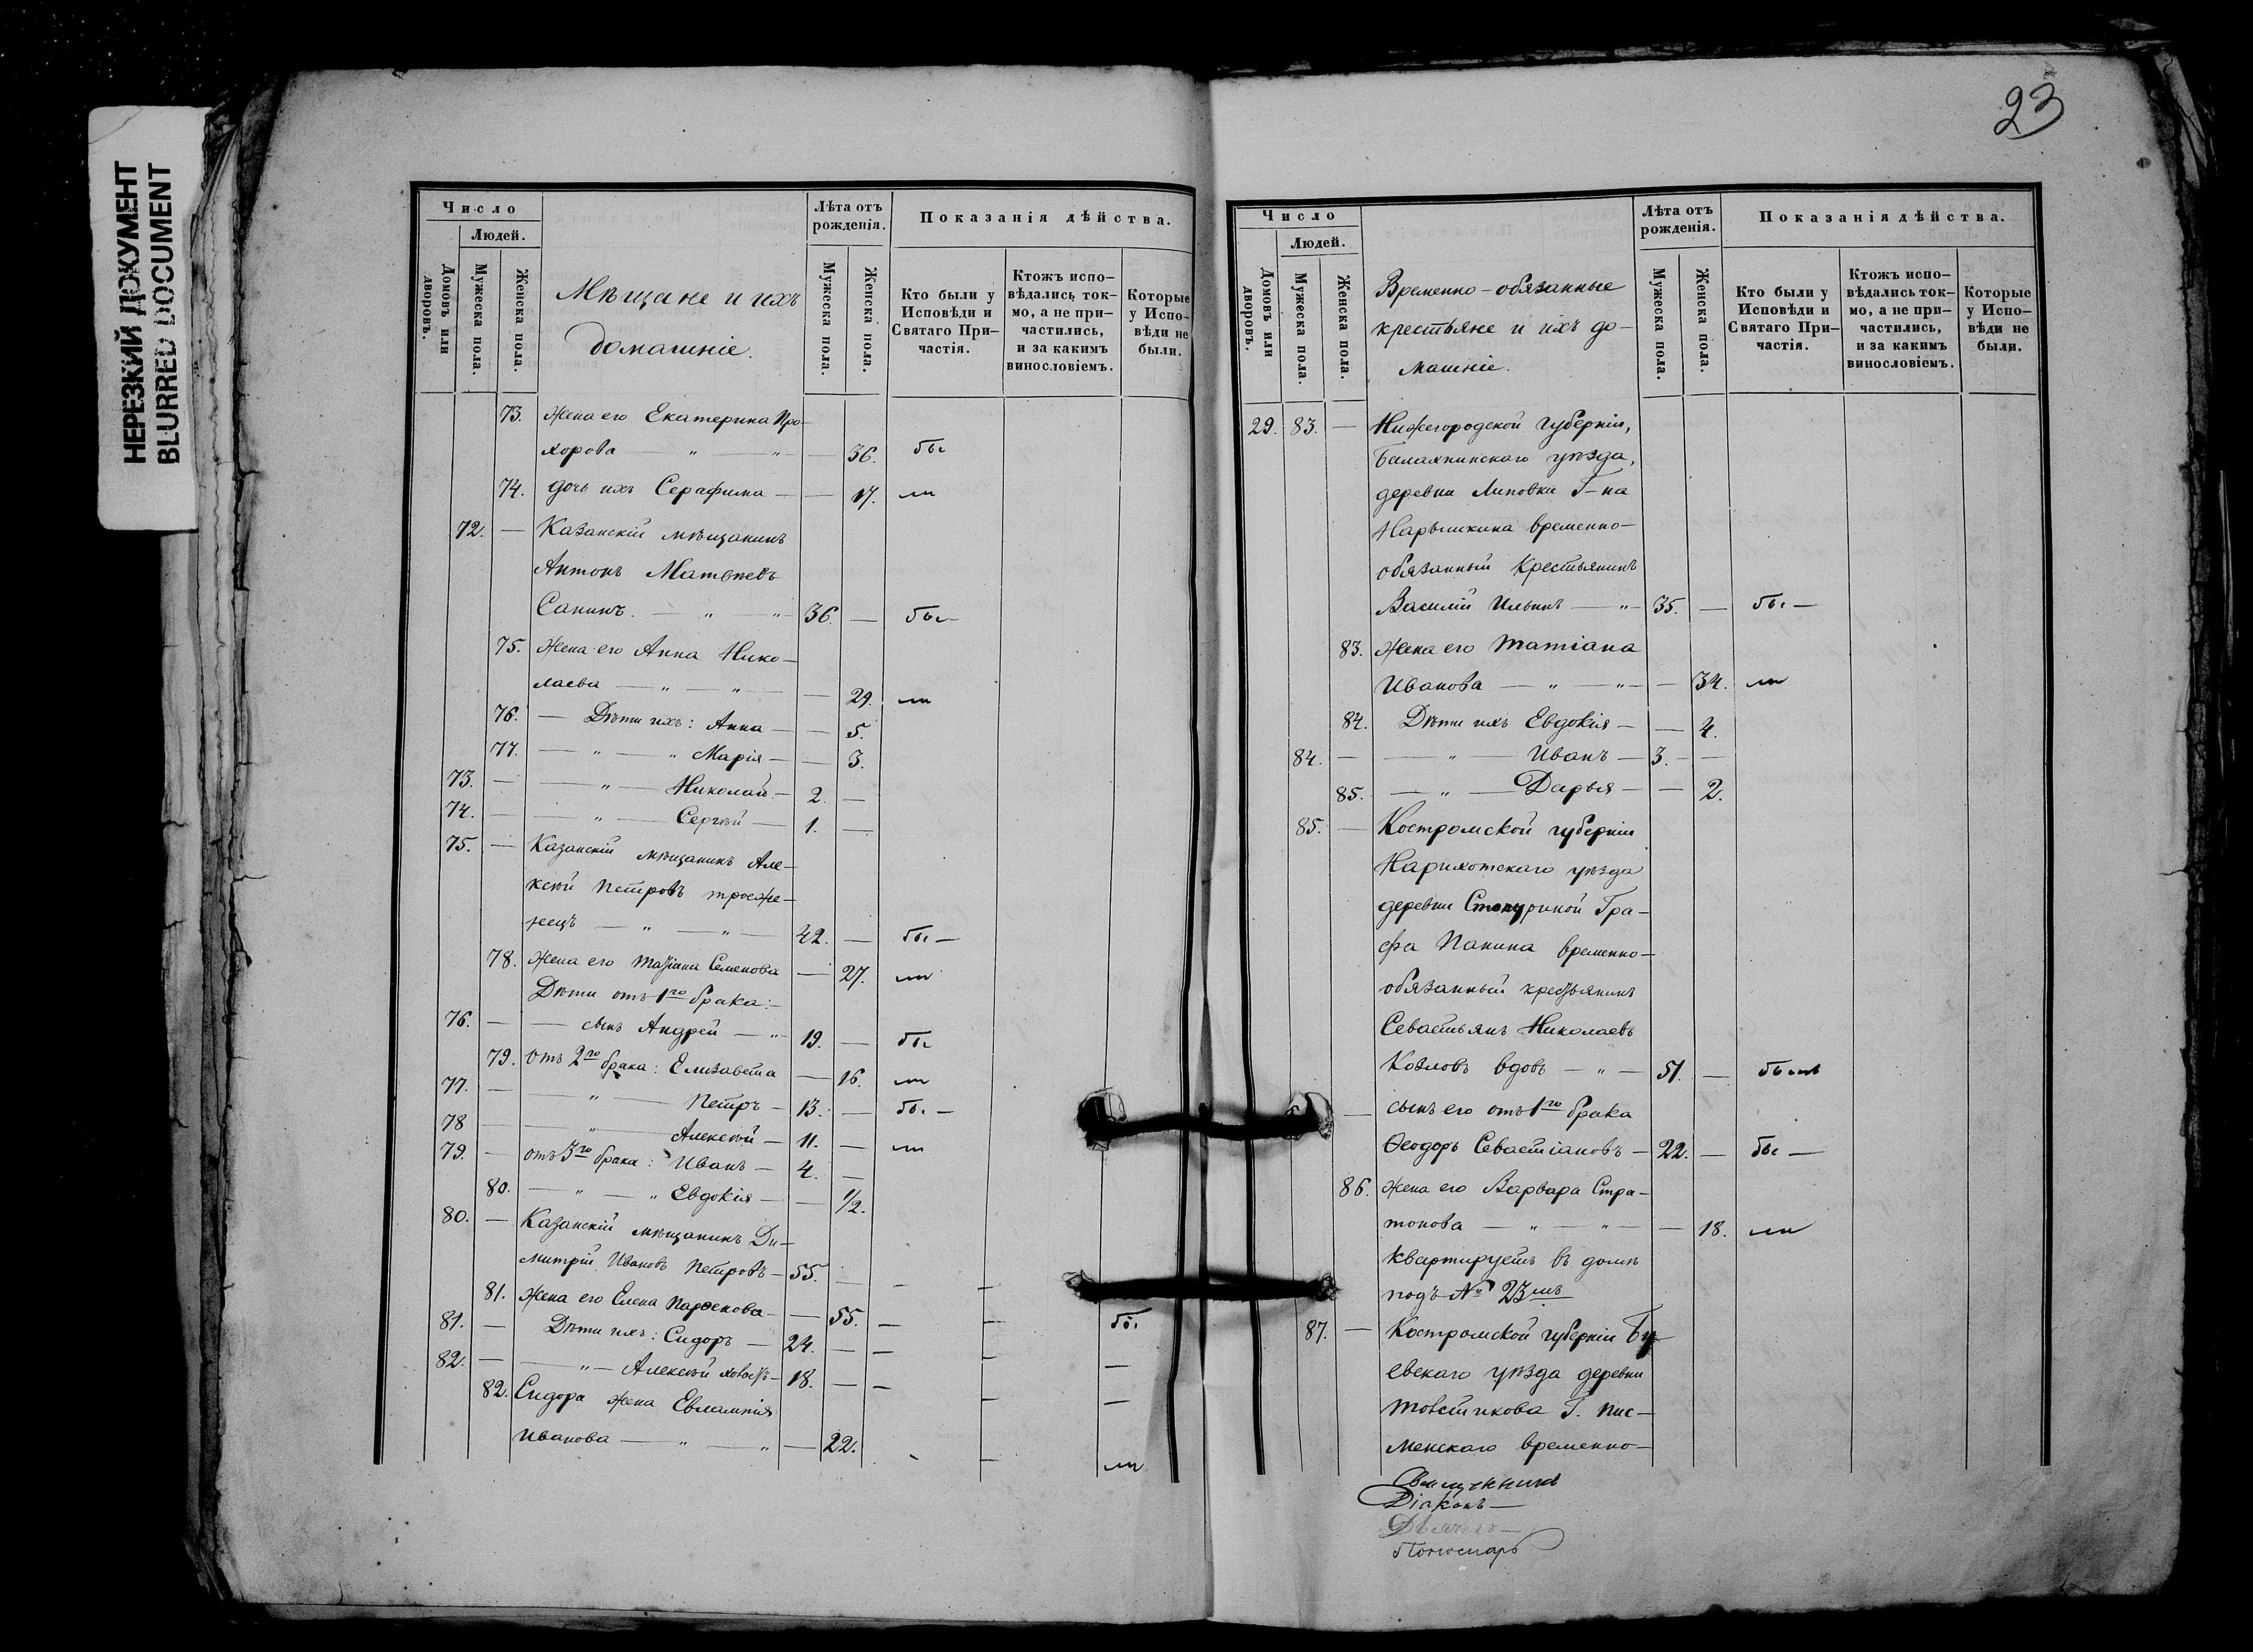 НЕРЕЗКИЙ ДОКУМЕНТ
BLURRED DOCUMENT
Число
Людей.
Домовъ или дворовъ.
Мужеска пола.
Женска пола.
Мѣщане и ихъ
домашніе.
Лѣта отъ
рожденія.
Мужеска пола.
Женска пола.
Показанія дѣйства.
Кто были у
Исповѣди и
Святаго При-
частія.
Ктожъ испо-
вѣдались ток-
мо, а не при-
частились,
и за какимъ
винословіемъ.
Которые
у Испо-
вѣди не
были.
73. Жена его Екатерина Про-
хорова — „ — „ — 36. бы
74. дочь ихъ Серафима — — 17. ли
72. — Казанскій мѣщанинъ
Антонъ Матвѣевъ
Санинъ. — „ — „ 36. — бы
75. Жена его Анна Нико-
лаева — „ — „ — 29. ли
76. — Дѣти ихъ: Анна — — 5.
77. — „ — „ Марія — — 3.
73. — — „ — Николай — 2. —
74. — — „ — Сергѣй — 1. —
75. — Казанскій мѣщанинъ Але-
ксѣй Петровъ троеже-
нецъ — „ — „ — 42. — бы —
78. Жена его Татіана Семенова — 27. ли
Дѣти отъ 1го брака:
76. — — сынъ Андрей — „ 19. — бы
79. Отъ 2го брака: Елизавета — 16. ли
77. — — „ — Петръ — 13. — бы —
78 — — „ — Алексѣй — 11. — ли
79. — отъ 3го брака: Иванъ — 4. —
80. — „ — „ Евдокія — — 1/2.
80. — Казанскій мѣщанинъ Ди-
митрій Ивановъ Петровъ — 55. — — —
81. Жена его Елена Парѳенова — — 55. — — бы
81. — Дѣти ихъ: Сидоръ — 24. — — — —
82. — — „ — Алексѣй холостъ — 18. — — — —
82. Сидора жена Евлампія
Иванова — „ — „ — 22. — ли
23
Число
Людей.
Домовъ или дворовъ.
Мужеска пола.
Женска пола.
Временно-обязанные
крестьяне и ихъ до-
машніе.
Лѣта отъ
рожденія.
Мужеска пола.
Женска пола.
Показанія дѣйства.
Кто были у
Исповѣди и
Святаго При-
частія.
Ктожъ испо-
вѣдались ток-
мо, а не при-
частились,
и за какимъ
винословіемъ.
Которые
у Испо-
вѣди не
были.
29. 83. — Нижегородской губерніи,
Балахнинскаго уѣзда,
деревни Липовки Г-на
Нарышкина временно-
обязанный крестьянинъ
Василій Ильинъ — „ — 35. — бы —
83. Жена его Татіана
Иванова — „ — „ — — 34. ли
84. Дѣти ихъ Евдокія — — 4.
84. — — „ — Иванъ — 3. — —
85. — „ — Дарья — — 2.
85. — Костромской губерніи
деревни
Гра-
фа Панина временно-
обязанный крестьянинъ
Севастьянъ Николаевъ
Козловъ вдовъ — „ — 51. — былъ
— сынъ его отъ 1го брака
Ѳеодоръ Севастіановъ — 22. — бы —
86. Жена его Варвара Стра-
тонова — „ — „ — — 18. ли
квартируетъ въ домѣ
подъ № 23мъ
87. — Костромской губерніи Бу
евскаго уѣзда деревни
Г. Пис-
менскаго временно-
Священникъ
Діаконъ —
Дьячекъ —
Пономарь